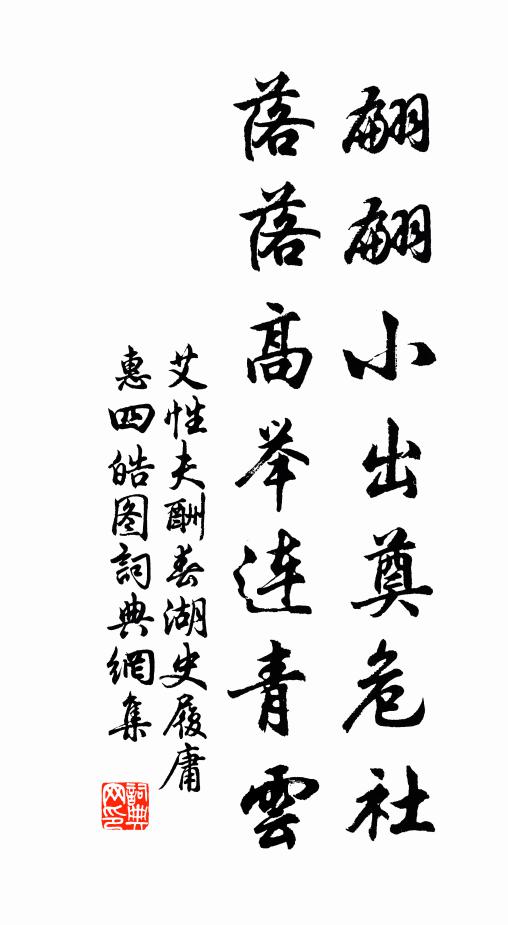 翩翩小出奠危社
落落高举連青雲
艾性夫酬春湖史履庸
惠四皓图詞典網集
詞典网印